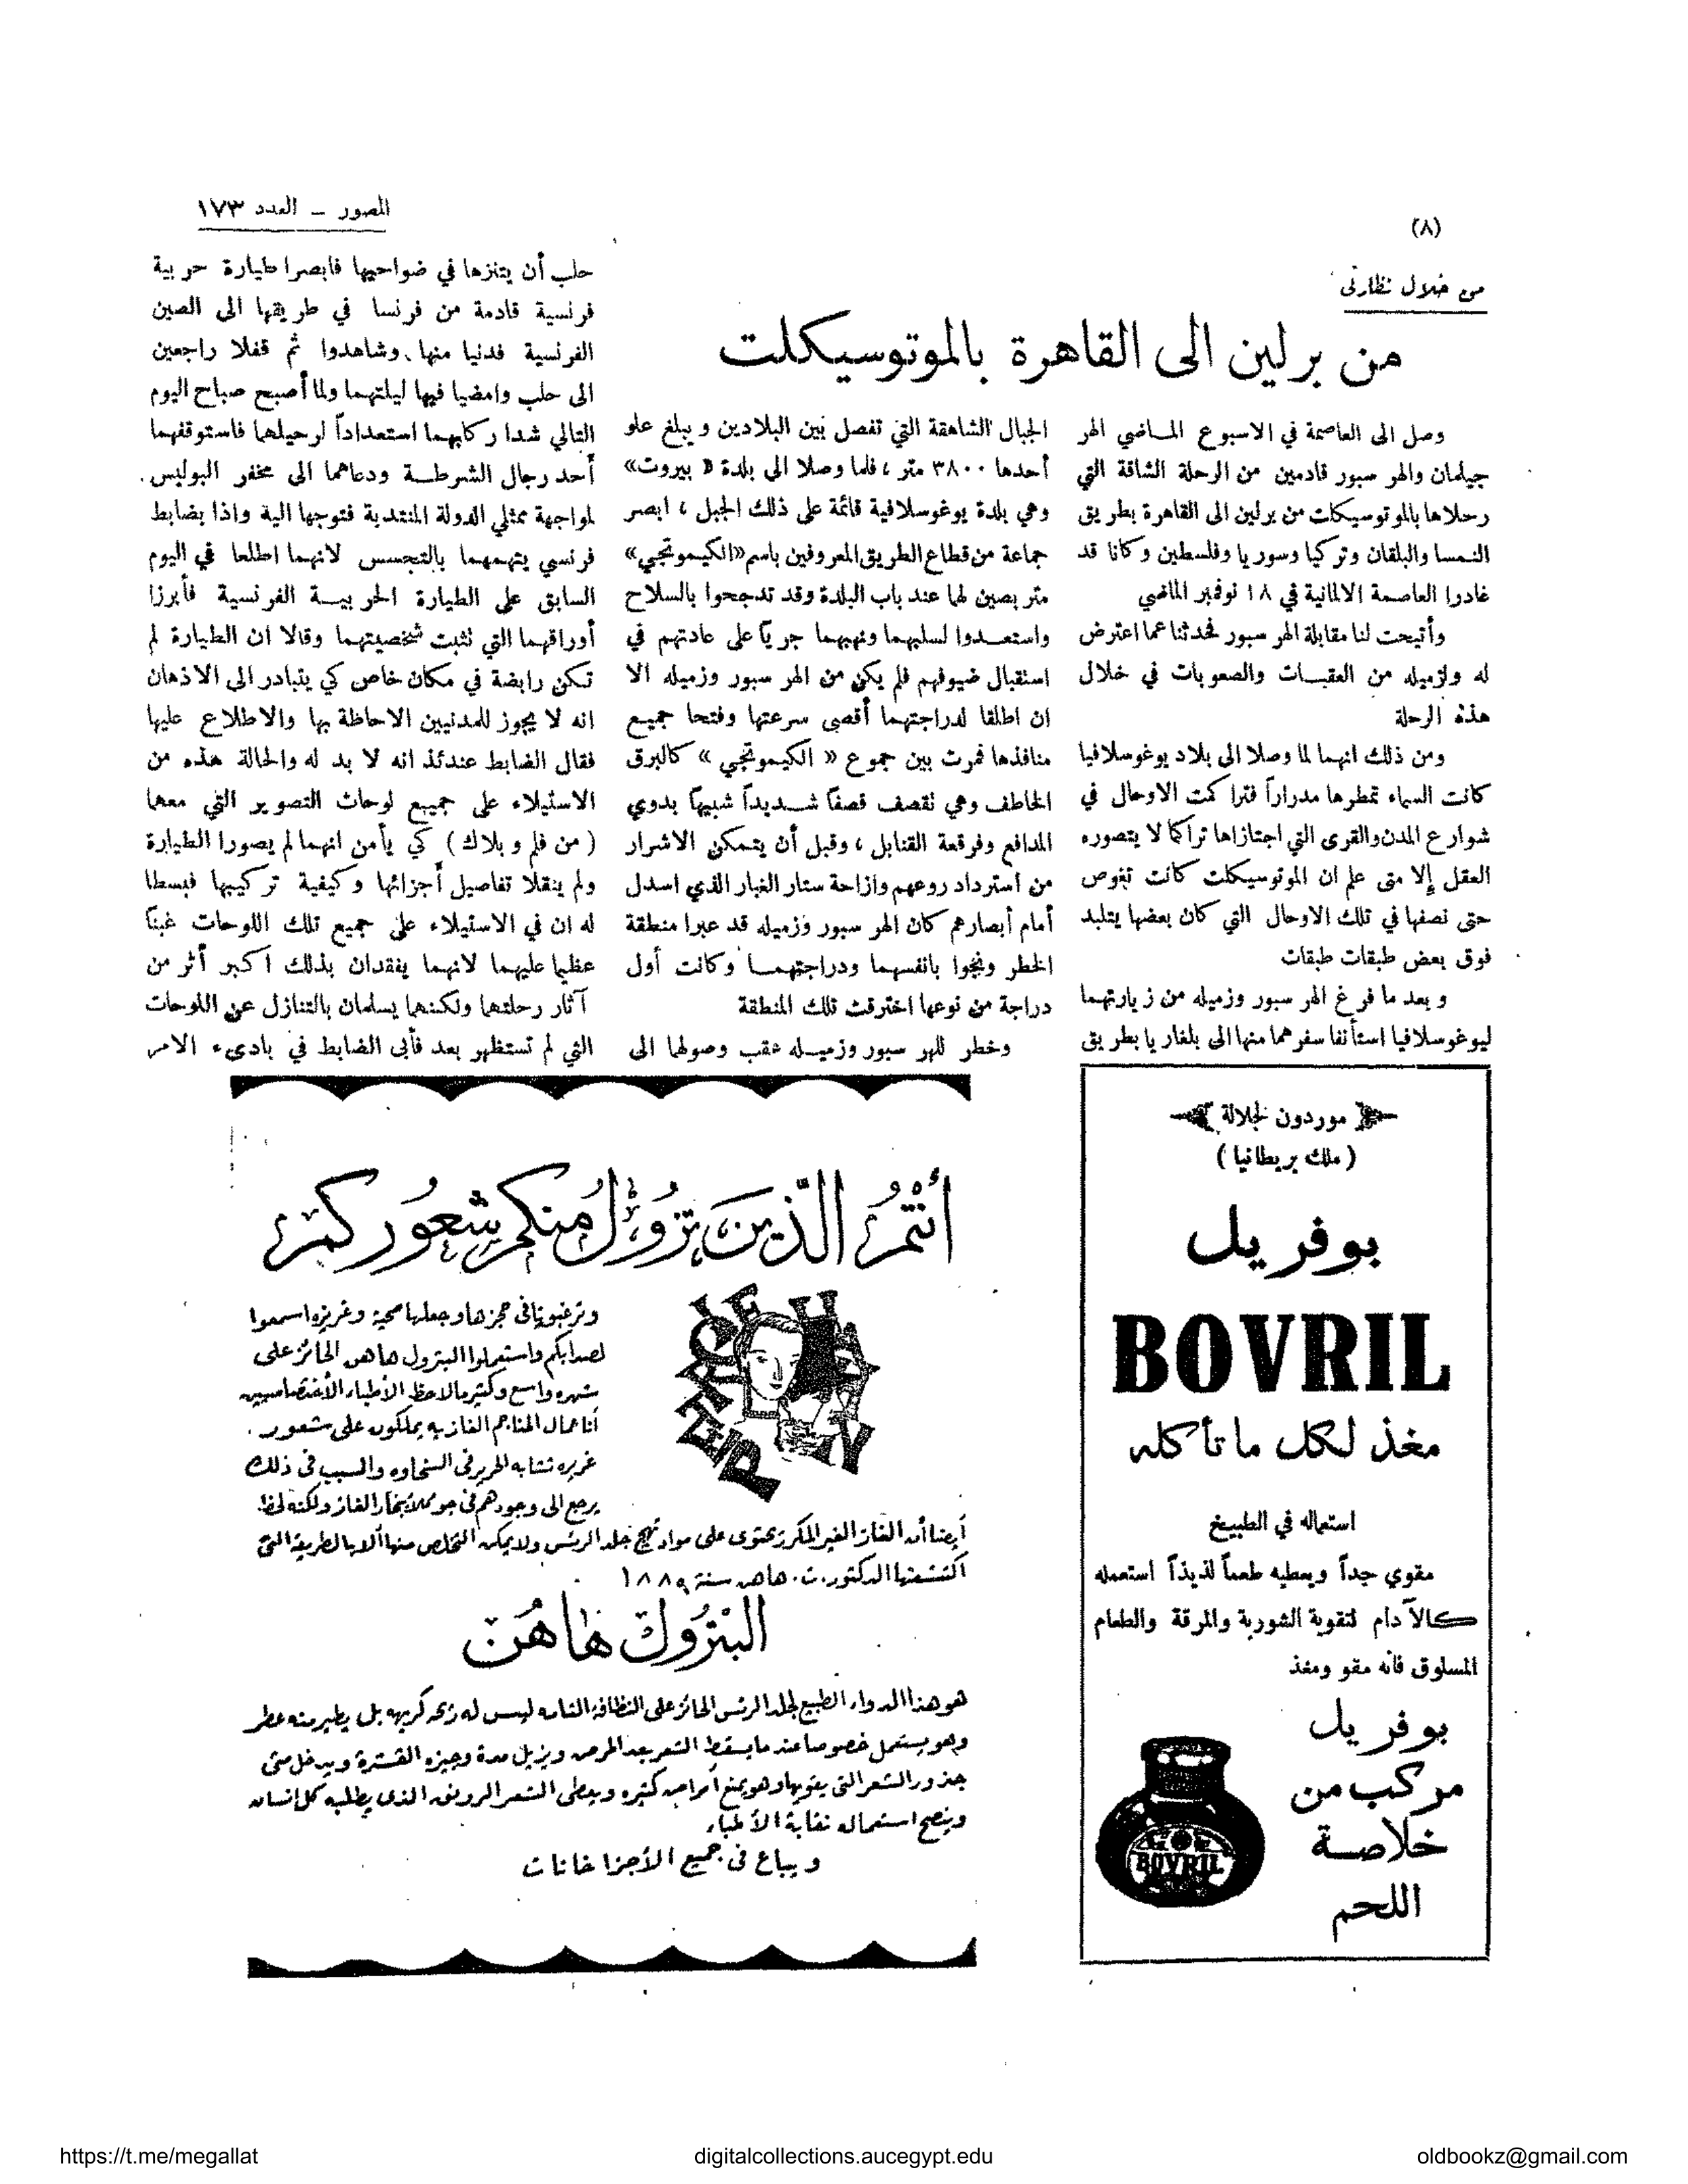 (٨)
المصور – العدد ١٧٣
من خلال نظارتى
من برلين الى القاهرة بالموتوسيكلت
وصل الى العاصمة في الاسبوع الماضي الهر
جيلمان والهر سبور قادمين من الرحلة الشاقة التي
رحلاها بالموتوسيكلت من برلين الى القاهرة بطريق
النمسا والبلقان وتركيا وسوريا وفلسطين وكانا قد
غادرا العاصمة الالمانية في ١٨ نوفمبر الماضي
وأتيحت لنا مقابلة الهر سبور فحدثنا عما اعترض
له ولزميله من العقبات والصعوبات في خلال
هذه الرحلة
ومن ذلك انهما لما وصلا الى بلاد يوغوسلافيا
كانت السماء تمطرها مدراراً فتراكمت الاوحال في
شوارع المدن والقرى التي اجتازاها تراكما لا يتصوره
العقل إلا متى علم ان الموتوسيكلت كانت تغوص
حتى نصفها في تلك الاوحال التي كان بعضها يتلبد
فوق بعض طبقات طبقات
وبعد ما فرغ الهر سبور وزميله من زيارتهما
ليوغوسلافيا استأنفا سفرهما منها الى بلغاريا بطريق
الجبال الشاهقة التي تفصل بين البلادين ويبلغ علو
أحدها ٣٨٠٠ متر ، فلما وصلا الى بلدة « بيروت»
وهي بلدة يوغوسلافية قائمة على ذلك الجبل ، ابصر
جماعة من قطاع الطريق المعروفين باسم «الكيموتجي»
متربصين لهما عند باب البلدة وقد تدججوا بالسلاح
واستعدوا لسلبهما ونهبهما جرياً على عادتهم في
استقبال ضيوفهم فلم يكن من الهر سبور وزميله الا
ان اطلقا لدراجتهما أقصى سرعتها وفتحا جميع
منافذها فمرت بين جموع « الكيموتجي » كالبرق
الخاطف وهي تقصف قصفاً شديداً شبيهاً بدوي
المدافع وفرقعة القنابل ، وقبل أن يتمكن الاشرار
من استرداد روعهم وازاحة ستار الغبار الذي اسدل
أمام أبصارهم كان الهر سبور وزميله قد عبرا منطقة
الخطر ونجوا بانفسهما ودراجتهما وكانت أول
دراجة من نوعها اخترقت تلك المنطقة
وخطر للهر سبور وزميله عقب وصولها الى
حلب أن يتنزها في ضواحيها فابصرا طيارة حربية
فرنسية قادمة من فرنسا في طريقها الى الصين
الفرنسية فدنيا منها وشاهدوا ثم قفلا راجعين
الى حلب وامضيا فيها ليلتهما ولما أصبح صباح اليوم
التالي شدا ركابهما استعداداً لرحيلهما فاستوقفهما
أحد رجال الشرطة ودعاهما الى مخفر البوليس
لمواجهة ممثلي الدولة المنتدبة فتوجها اليه واذا بضابط
فرنسي يتهمهما بالتجسس لانهما اطلعا في اليوم
السابق على الطيارة الحربية الفرنسية فأبرزا
أوراقهما التي تثبت شخصيتهما وقالا ان الطيارة لم
تكن رابضة في مكان خاص كي يتبادر الى الاذهان
انه لا يجوز للمدنيين الاحاطة بها والاطلاع عليها
فقال الضابط عندئذ انه لا بد له والحالة هذه من
الاستيلاء على جميع لوحات التصوير التي معهما
( من فلم وبلاك ) كي يأمن انهما لم يصورا الطيارة
ولم ينقلا تفاصيل أجزائها وكيفية تركيبها فبسطا
له ان في الاستيلاء على جميع تلك اللوحات غبناً
عظيما عليهما لانهما يفقدان بذلك اكبر أثر من
آثار رحلتهما ولكنهما يسلمان بالتنازل عن اللوحات
التي لم تستظهر بعد فأبى الضابط في بادىء الامر
موردون لجلالة
( ملك بريطانيا )
بوفريل
BOVRIL
مغذ لكل ما تأكله
استعماله في الطبيخ
مقوي جداً ويعطيه طعماً لذيذاً استعمله
كالآدام لتقوية الشوربة والمرقة والطعام
المسلوق فانه مقو ومغذ
بوفريل
مركب من
خلاصة
اللحم
BOVRIL
أنتم الذين تزول منكم شعوركم
PETROLE HAHN
وترغبون فى حجزها وجعلها صحية وغزيره اسمعوا
واستعملوا البترول هاهن الحائز على
شهره واسع وكثير مالاحظ الأطباء الأختصاصيين
أن عمال المناجم الغازيه يملكون على شعور
غزيره تشابه الحرير فى السخاوه والسبب فى ذلك
يرجع الى وجودهم فى جو مملأ بخار الغاز ولكنه لحظ
أيضا أن الغاز الغير المكرر يحتوى على مواد تهيج جلد الرئس ولا يمكن التخلص منها ألا بالطريقة التى
أكتشفها الدكتور. ت. هاهن سنة ١٨٨٩
البترول هاهن
هو هذا الدواء الطبيع لجلد الرئس الحائز على النظافة التامه ليس له رئحه كريهه بل يطير منه عطر
وهو يستعمل خصوصا عند ما يسقط الشعر بعد المرض ويزيل مدة وجيزه القشرة ويدخل متى
جذور الشعر التى يقويها وهو يمنع أمراض كثيره ويعطى الشعر الرونق الذى يطلبه كل انسان
وينصح استعماله نقابة الأطباء
ويباع فى جميع الأجزاخانات
https://t.me/megallat
digitalcollections.aucegypt.edu
oldbookz@gmail.com